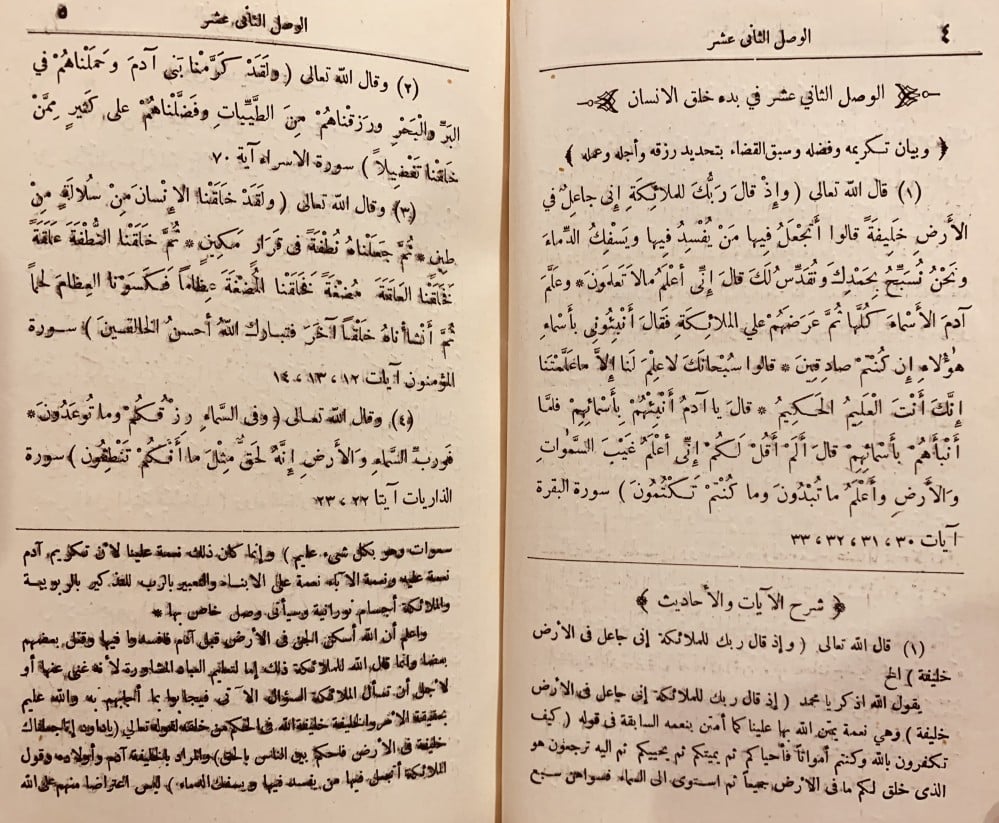 ٤
الوصل الثاني عشر
الوصل الثاني عشر في بدء خلق الانسان
﴿ وبيان تكريمه وفضله وسبق القضاء بتحديد رزقه وأجله وعمله ﴾
(١) قال الله تعالى ( وإِذْ قالَ رَبُّكَ لِلملائِكَةِ إِنى جاعِلٌ في
الأَرضِ خَلِيفَةً قالوا أَتَجعَلُ فِيها مَنْ يُفْسِدُ فيها ويَسفِكُ الدِّماءَ
ونَحْنُ نُسَبِّحُ بِحَمْدِكَ ونُقَدِّسُ لكَ قالَ إِنِّى أعْلَمُ مالا تَعلَمونَ * وعَلَّمَ
آدمَ الأَسْماءَ كُلَّها ثُمَّ عَرَضَهُمْ علي الملائِكَةِ فقالَ أَنبِئُونِى بأَسْماءِ
هٰؤُلاءِ إِن كُنتُمْ صادِقِينَ * قالوا سُبْحانَكَ لاعِلْمَ لَنا إِلاَّ ماعَلَّمْتَنا
إِنَّكَ أَنْتَ الْعَلِيمُ الحَكِيمُ * قالَ ياآدمُ أَنْبِئْهُمْ بِأَسْمائِهِمْ فلمَّا
أَنْبَأَهُمْ بأَسْمائِهِمْ قالَ أَلَمْ أَقُلْ لَكُمْ إِنِّى أَعْلَمُ غَيْبَ السَّمٰواتِ
والأَرضِ وأَعْلَمُ ما تُبْدُونَ وما كُنْتُمْ تَكْتُمُونَ ) سورة البقرة
آيات ٣٠ ، ٣١ ، ٣٢ ، ٣٣
﴿ شرح الآيات والأحاديث ﴾
(١) قال الله تعالى ( وإذ قال ربك للملائكة إنى جاعل فى الأرض
خليفة ) الخ
يقول الله اذكر يا محمد ( إذ قال ربك للملائكة إنى جاعل فى الأرض
خليفة ) وهي نعمة يمتن الله بها علينا كما أمتن بنعمه السابقة فى قوله ( كيف
تكفرون بالله وكنتم أمواتاً فأحياكم ثم يميتكم ثم يحييكم ثم اليه ترجعون هو
الذى خلق لكم ما فى الأرض جميعاً ثم استوى الى السماء فسواهن سبع
الوصل الثانى عشر
٥
(٢) وقال الله تعالى ( ولَقَدْ كَرَّمْنا بَنى آدمَ وحَمَلْناهُمْ في
البَرِّ والْبَحْرِ ورَزقْناهُمْ مِنَ الطَّيِّباتِ وفَضَّلْناهُمْ على كَثيرٍ مِمَّنْ
خَلَقْنا تَفْضِيلاً ) سورة الاسراء آية ٧٠
(٣) وقال الله تعالى ( ولَقَدْ خَلَقْنا الإِنْسانَ مِنْ سُلالَةٍ مِنْ
طينٍ * ثُمَّ جَعَلْناهُ نُطْفَةً فى قَرارٍ مَكِينٍ * ثُمَّ خَلَقْنا النُّطْفَةَ عَلَقَةً
فَخَلَقْنا العَلَقَةَ مُضْغَةً فَخَلَقْنا المُضْغَةَ عِظاماً فَكَسَوْنا العِظامَ لَحْماً
ثُمَّ أَنْشأْناهُ خَلْقاً آخَرَ فتبارك اللهُ أحسنُ الخالقين ) سورة
المؤمنون آيات ١٢ ، ١٣ ، ١٤
(٤) وقال الله تعالى ( وفى السَّماءِ رِزْقُكُمْ وما تُوعَدُونَ *
فَوربِّ السَّماءِ والأَرضِ إِنَّهُ لَحَقٌّ مِثْلَ ما أَنَّكُمْ تَنْطِقُونَ ) سورة
الذاريات آيتا ٢٢ ، ٢٣
سموات وهو بكل شىء عليم ) وإنما كان ذلك نعمة علينا لأن تكريم آدم
نعمة عليه ونعمة الآباء نعمة على الأبناء والتعبير بالرب للتذكير بالربوبية
والملائكة أجسام نورانية وسيأتى وصل خاص بها *
واعلم أن الله أسكن الجن فى الأرض قبل آدم فافسدوا فيها وقتل بعضهم
بعضا وانما قال الله للملائكة ذلك إما لتعليم العباد المشاورة لأنه غنى عنها أو
لأجل أن تسأل الملائكة السؤال الآتى فيجابوا بما أجابهم به والله عليم
بحقيقة الأمر والخليفة خليفة الله فى الحكم بين خلقه لقوله تعالى (ياداود إنا جعلناك
خليفة فى الأرض فاحكم بين الناس بالحق) والمراد بالخليفة آدم وأولاده وقول
الملائكة أتجعل فيها من يفسد فيها ويسفك الدماء ) ليس اعتراضا منهم على الله